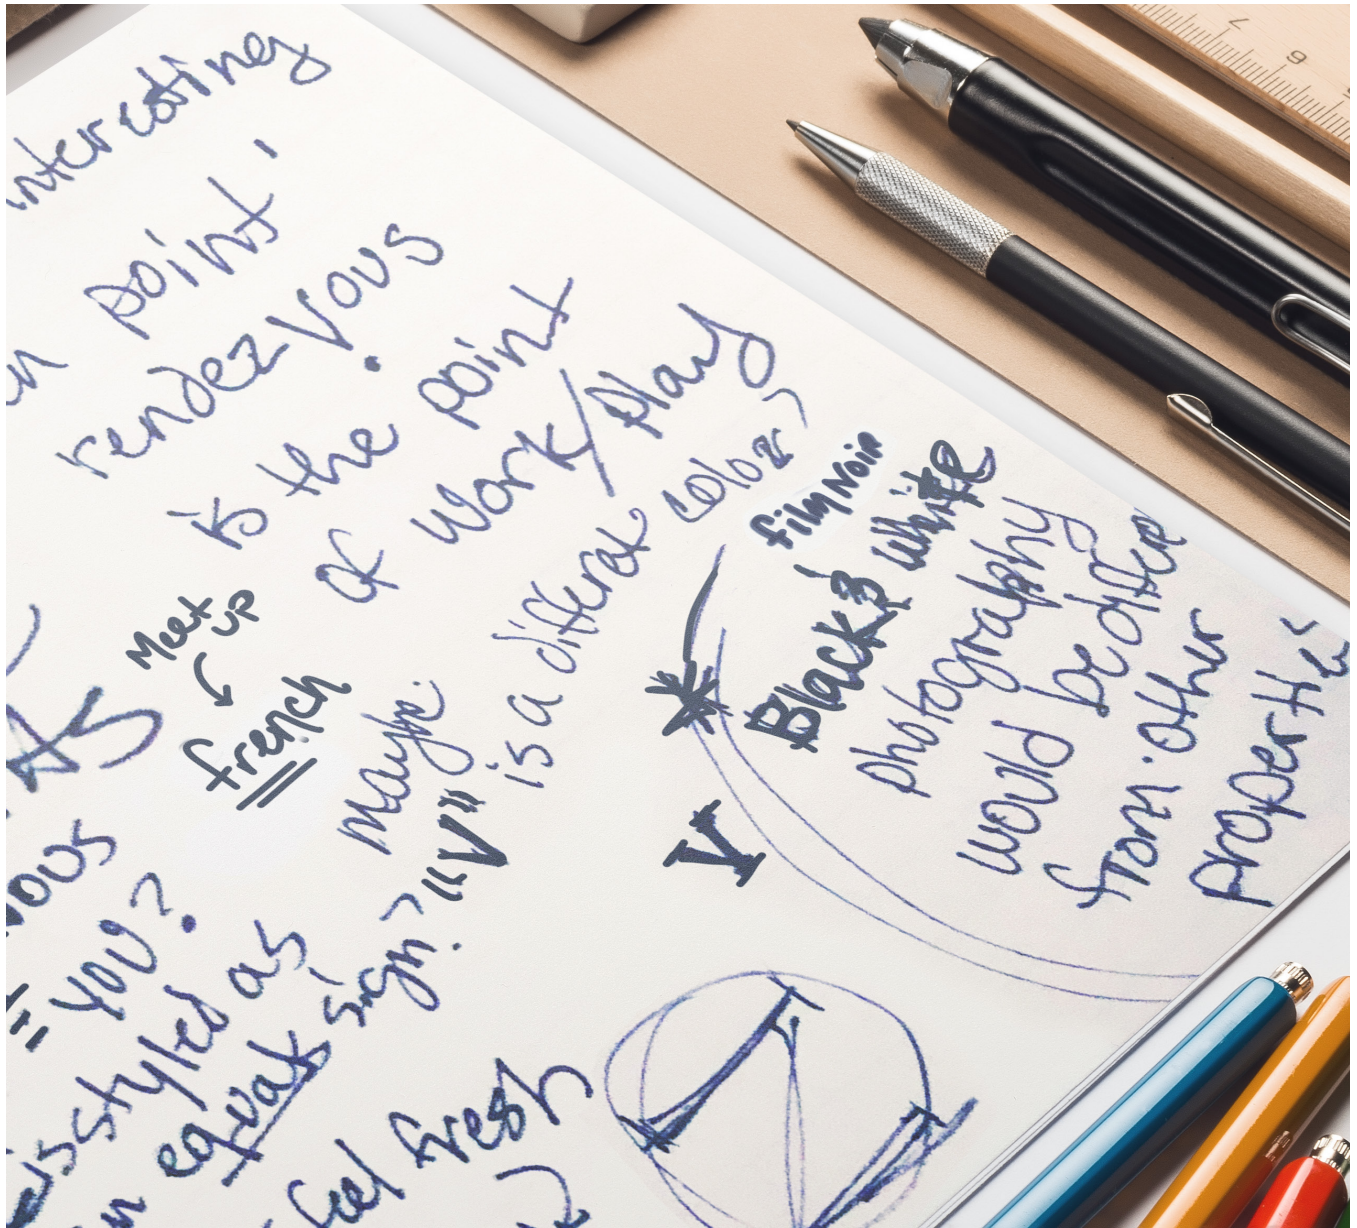 interesting
point'
rendezVous
is the point
of work/play
Meet
up
french
maybe.
"V"
is a different
color?
film Noir
Black & white
photography
would be differe
from other
properties
V
vous
= you?
is styled as
equals sign?
feel fresh
7
6